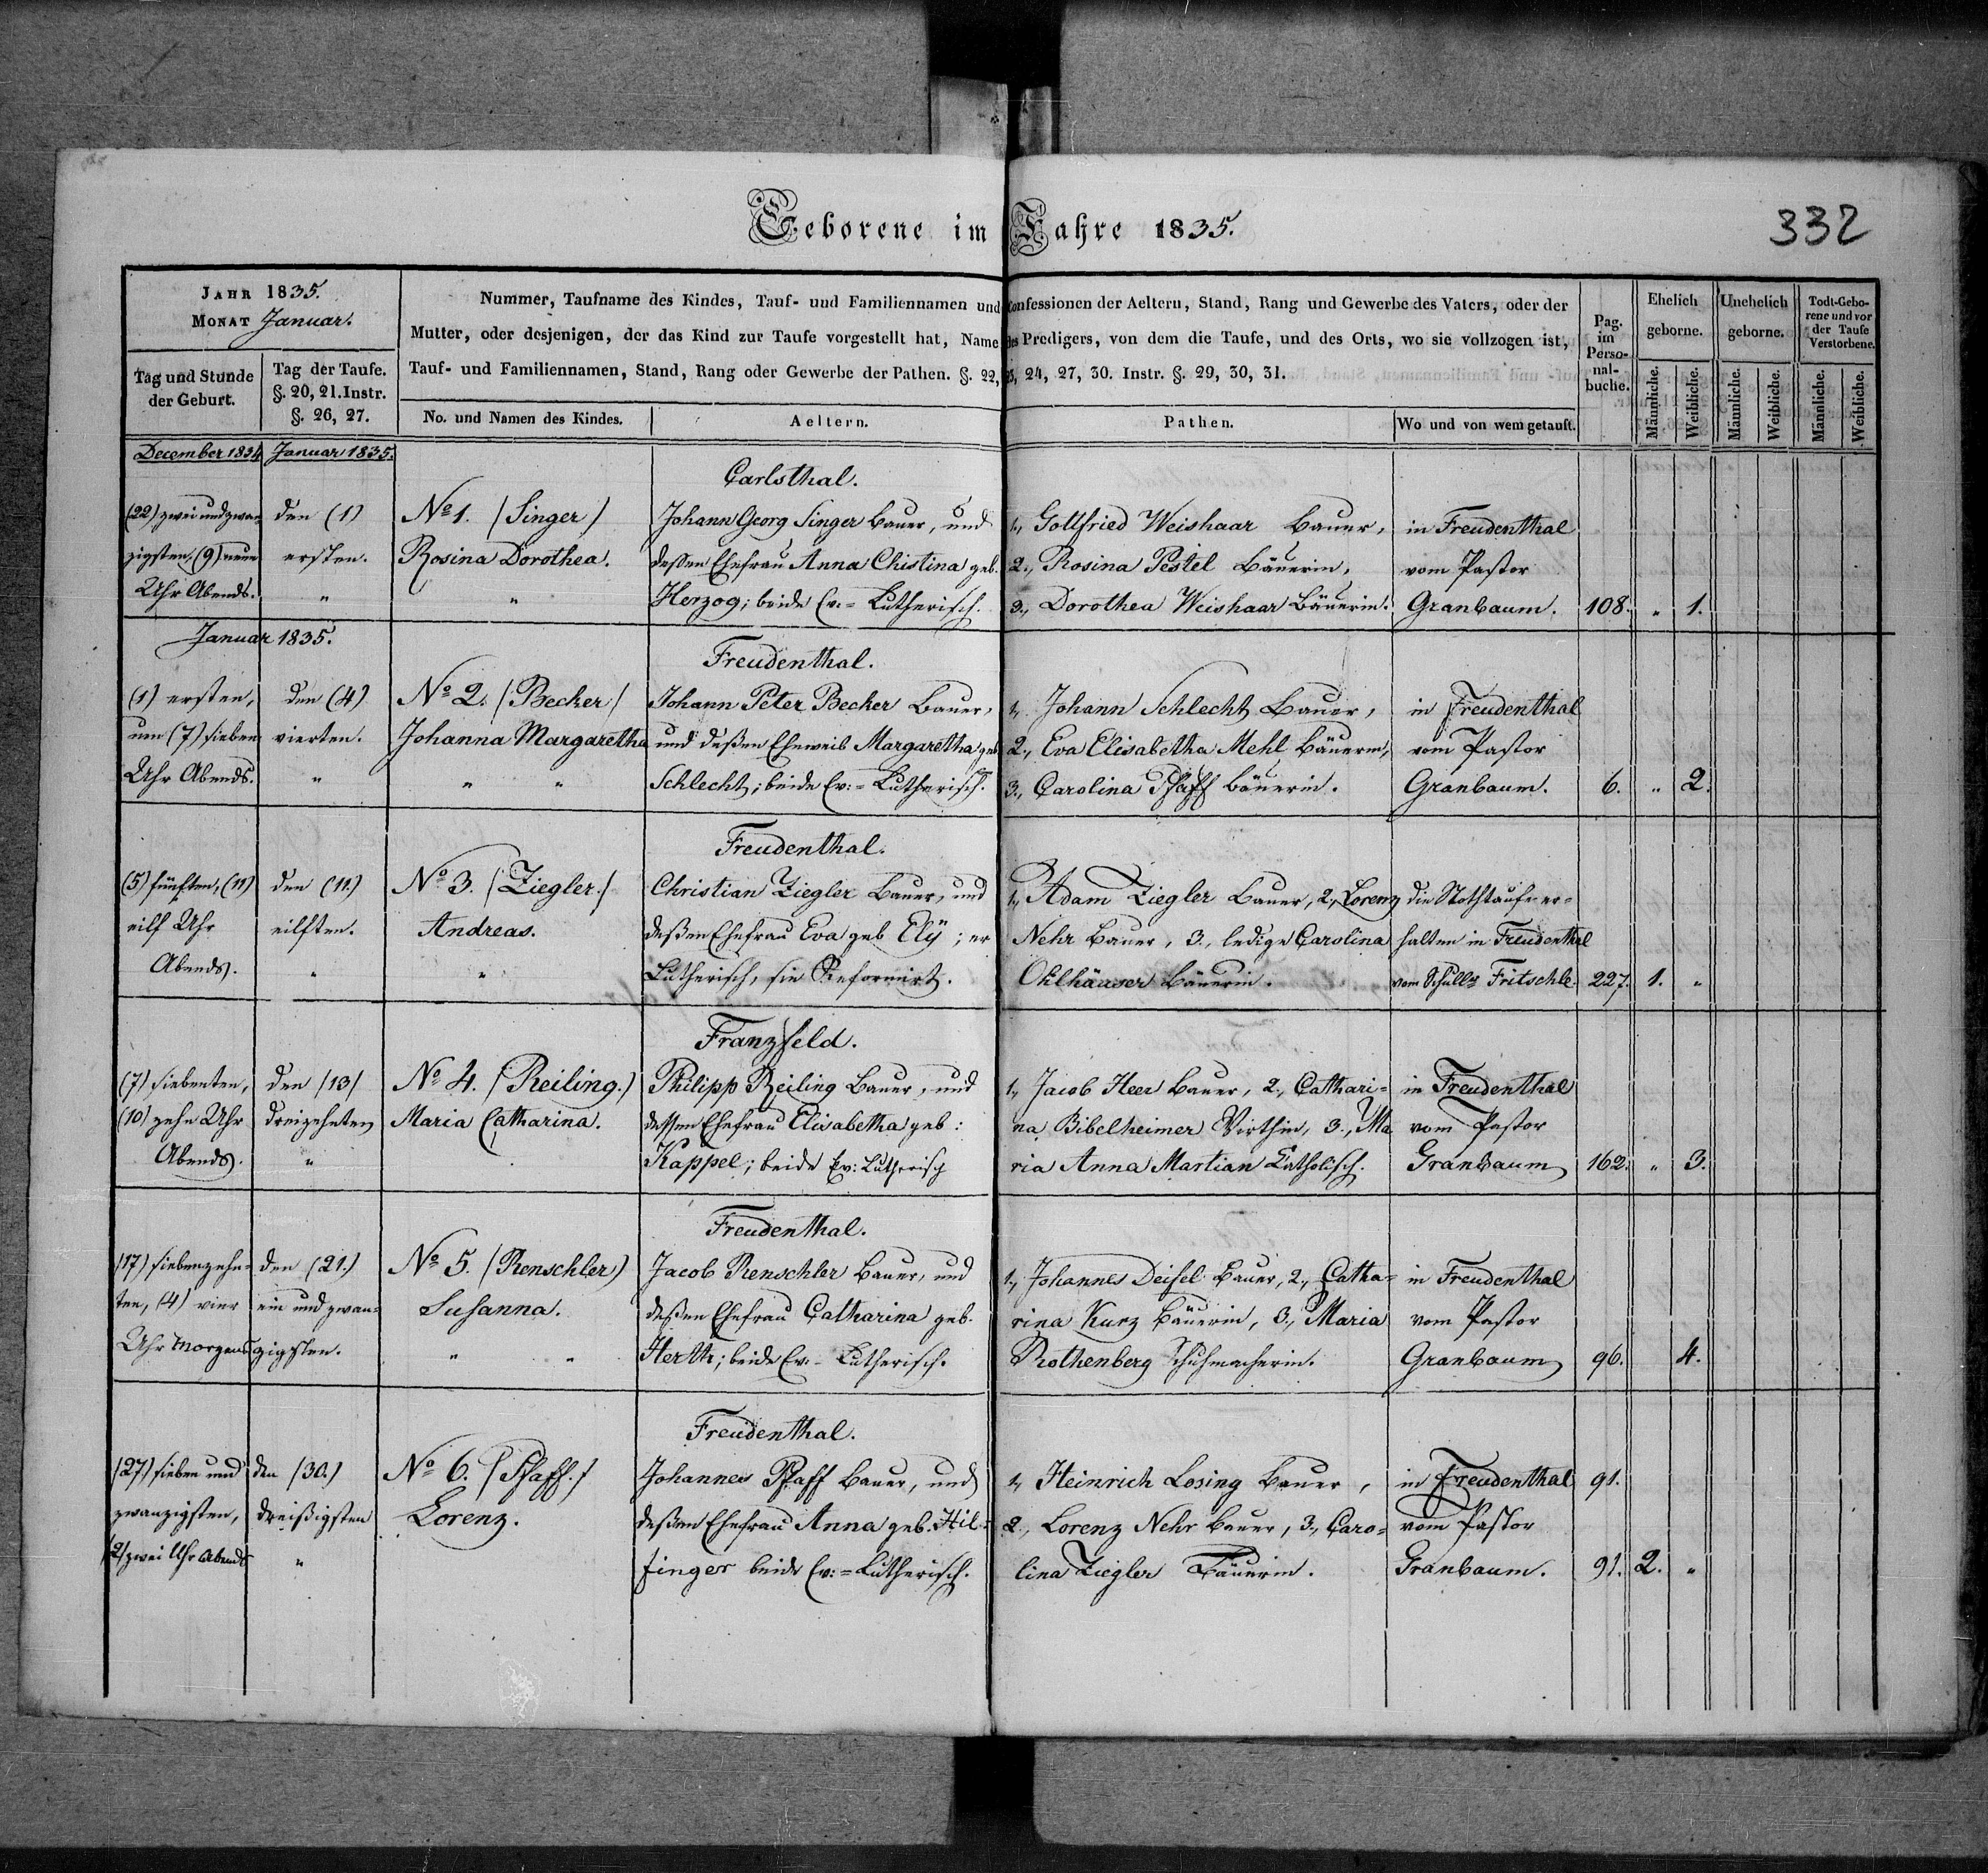 Geborene im Jahre 1835.
332
JAHR 1835.
MONAT Januar.
Tag und Stunde der Geburt.
Tag der Taufe. §. 20, 21. Instr. §. 26, 27.
Nummer, Taufname des Kindes, Tauf- und Familiennamen und Confessionen der Aeltern, Stand, Rang und Gewerbe des Vaters, oder der
Mutter, oder desjenigen, der das Kind zur Taufe vorgestellt hat, Name des Predigers, von dem die Taufe, und des Orts, wo sie vollzogen ist,
Tauf- und Familiennamen, Stand, Rang oder Gewerbe der Pathen. §. 22, 23, 24, 27, 30. Instr. §. 29, 30, 31.
No. und Namen des Kindes.
Aeltern.
Pathen.
Wo und von wem getauft.
Pag. im Perso-nal-buche.
Ehelich geborne.
Unehelich geborne.
Todt-Gebo-rene und vor der Taufe Verstorbene.
Männliche. Weibliche. Männliche. Weibliche. Männliche. Weibliche.
December 1834 Januar 1835.
Carlsthal.
(22) zwei und zwan- den (1) No 1. (Singer) Johann Georg Singer Bauer, und 1., Gottfried Weishaar Bauer, in Freudenthal
zigsten, (9) neun ersten. Rosina Dorothea. dessen Ehefrau Anna Chistina geb. 2., Rosina Pestel Bäuerin, vom Pastor
Uhr Abends. " " Herzog; beide Ev:= Lutherisch. 3., Dorothea Weishaar Bäuerin. Granbaum. 108. " 1.
Januar 1835.
Freudenthal.
(1) ersten, den (4) No 2. (Becher) Johann Peter Becher Bauer, 1., Johann Schlecht Bauer, in Freudenthal
um (7) sieben vierten. Johanna Margaretha und deßen Eheweib Margaretha geb 2., Eva Elisabetha Mehl Bäuerin, vom Pastor
Uhr Abends. " " " Schlecht; beide Ev:= Lutherisch. 3., Carolina Pfaff Bäuerin. Granbaum. 6. " 2.
Freudenthal.
(5) fünften, (11) den (11.) No 3. (Ziegler.) Christian Ziegler Bauer, und 1., Adam Ziegler Bauer, 2., Lorenz die Nothtaufe er=
eilf Uhr eilften. Andreas. deßen Ehefrau Eva geb Elÿ; er Nehr Bauer, 3., ledige Carolina halten in Freudenthal
Abends. " " Lutherisch, sie Reformirt. Ohlhäuser Bäuerin. vom Schull: Fritschle. 227. 1. "
Franzfeld.
(7) siebenten, den (13) No 4. (Reiling.) Philipp Reiling Bauer, und 1., Jacob Heer Bauer, 2., Cathari= in Freudenthal
(10) zehn Uhr dreizehnten Maria Catharina. dessen Ehefrau Elisabetha geb: na Bibelheimer Wirthin, 3., Ma vom Pastor
Abends. " Kappel; beide Ev: Lutherisch ria Anna Martian Katholisch. Granbaum 162. " 3.
Freudenthal.
(17) siebenzehn= den (21.) No 5. (Renschler) Jacob Renschler Bauer, und 1., Johannes Deisel Bauer, 2., Catha= in Freudenthal
ten, (4) vier ein und zwan= Susanna. deßen Ehefrau Catharina geb. rina Kurz Bäuerin, 3., Maria vom Pastor
Uhr Morgens zigsten. " " Herth; beide Ev:= Lutherisch. Rothenberg Schuhmacherin. Granbaum 96. 4.
Freudenthal.
(27) sieben und den (30.) No 6. (Pfaff.) Johannes Pfaff Bauer, und 1., Heinrich Losing Bauer, in Freudenthal 91.
zwanzigsten, dreißigsten Lorenz. deßen Ehefrau Anna geb. Hil= 2., Lorenz Nehr Bauer, 3., Caro= vom Pastor
(2) zwei Uhr Abends " finger beide Ev:= Lutherisch. lina Ziegler Bäuerin. Granbaum. 91. 2. "